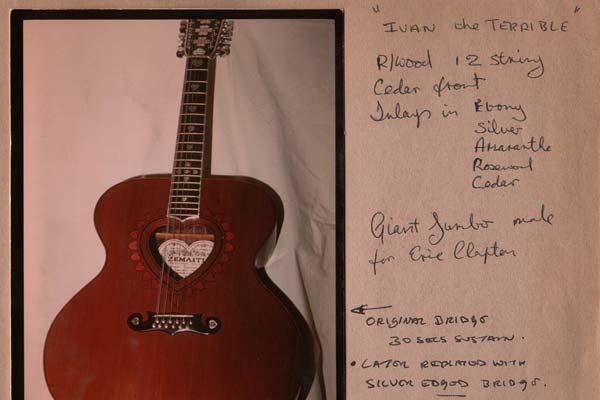 "IVAN the TERRIBLE"
R/wood 12 string
Cedar front
Inlays in Ebony
Silver
Amaranthe
Rosewood
Cedar
Giant Jumbo made
for Eric Clapton
ORIGINAL BRIDGE
30 SECS SUSTAIN.
• LATER REPLACED WITH
SILVER EDGED BRIDGE.
ZEMAITI